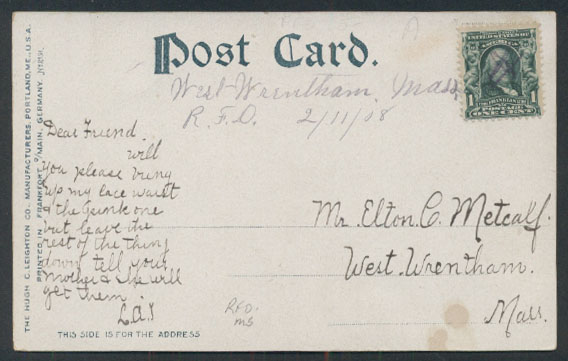 Post Card.
West Wrentham, Mass
R.F.D. 2/11/08
1 1
ONE CENT
Dear Friend
will
You please bring
up my lace waist
& the pink one
but leave the
rest of the thing
down tell your
Mother & she will
get them
Mr. Elton C. Metcalf.
West. Wrentham.
Mass.
RFD.
ms
THIS SIDE IS FOR THE ADDRESS
THE HUGH C. LEIGHTON CO., MANUFACTURERS, PORTLAND, ME., U.S.A.
PRINTED IN FRANKFORT O/MAIN, GERMANY.